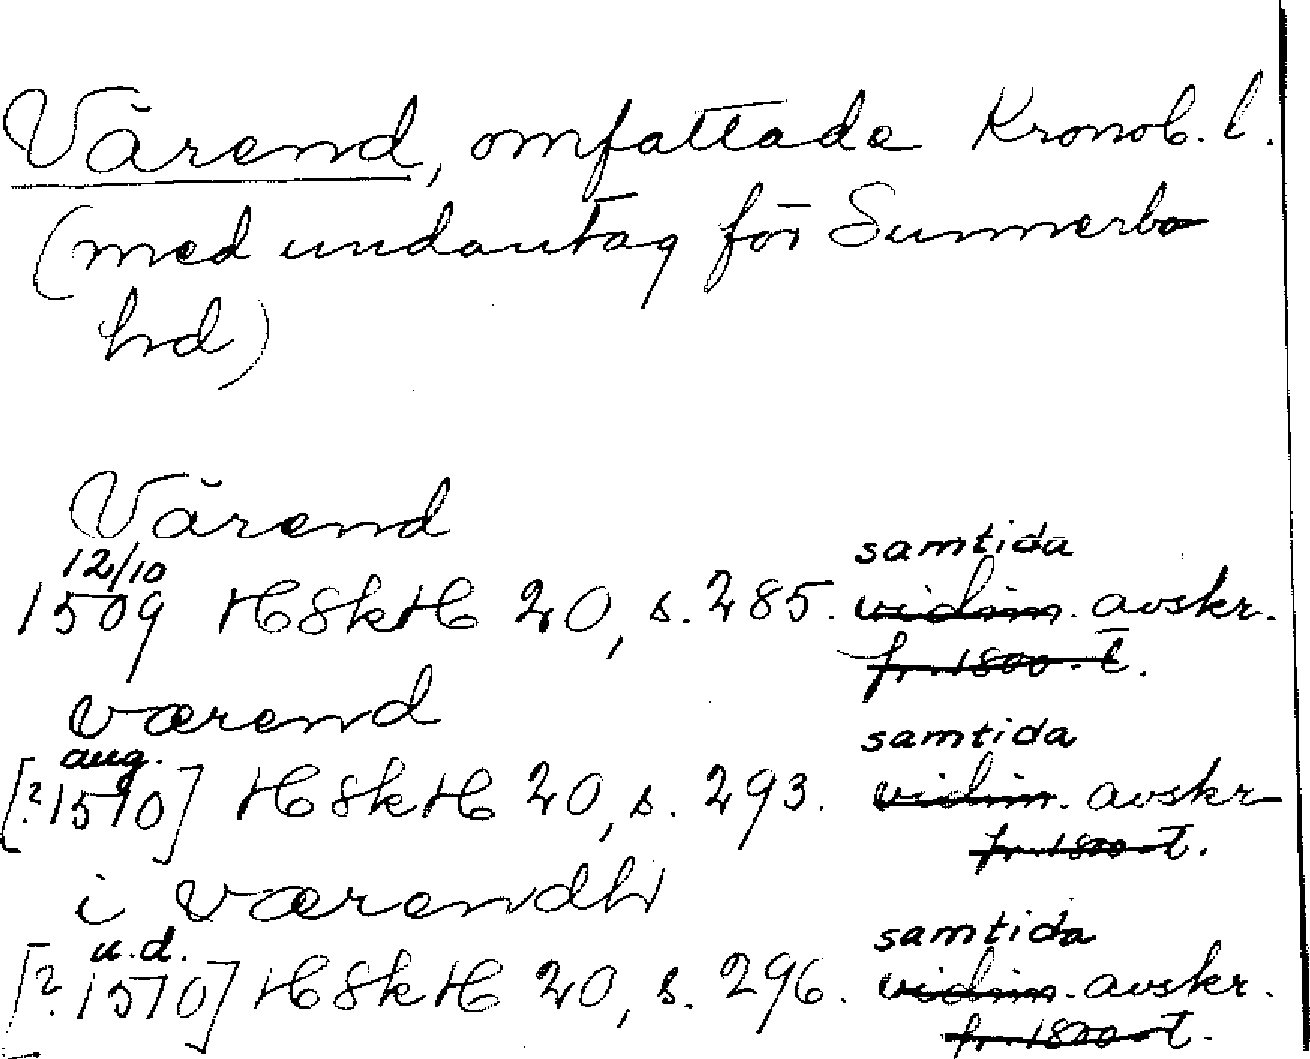 Värend, omfattade Kronob. l.
(med undantag för Sunnerbo
hd)
Värend
12/10 samtida
1509 HSkH 20, s. 285. vidim. avskr.
fr. 1800-t.
værend
aug. samtida
[?1510] HSkH 20, s. 293. vidim. avskr
fr. 1800-t.
i værendh
u.d. samtida
[?1510] HSkH 20, s. 296. vidim. avskr.
fr. 1800-t.